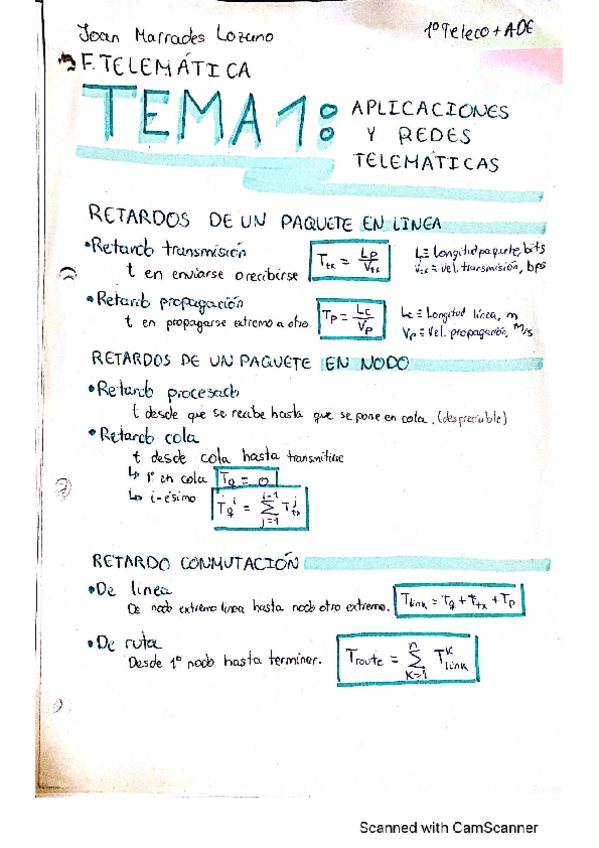 Joan Marrades Lozano
1º Teleco + ADE
F. TELEMÁTICA
TEMA 1:
APLICACIONES
Y REDES
TELEMÁTICAS
RETARDOS DE UN PAQUETE EN LINEA
•Retardo transmisión
t en enviarse o recibirse
Ttx = Lp/Vtx
L ≡ Longitud paquete, bits
Vtx ≡ vel. transmisión, bps
•Retardo propagación
t en propagarse extremo a otro
Tp = Lc/Vp
Lc ≡ Longitud línea, m
Vp ≡ Vel. propagación, m/s
RETARDOS DE UN PAQUETE EN NODO
•Retardo procesado
t desde que se recibe hasta que se pone en cola. (despreciable)
•Retardo cola
t desde cola hasta transmitirse
↳ 1º en cola Tq = 0
↳ i-ésimo Tq^i = Σ_{j=1}^{i-1} Ttx^j
RETARDO CONMUTACIÓN
•De línea
De nodo extremo línea hasta nodo otro extremo. Tlink = Tq + Ttx + Tp
•De ruta
Desde 1º nodo hasta terminer. Troute = Σ_{k=1}^{n} T^k_link
Scanned with CamScanner